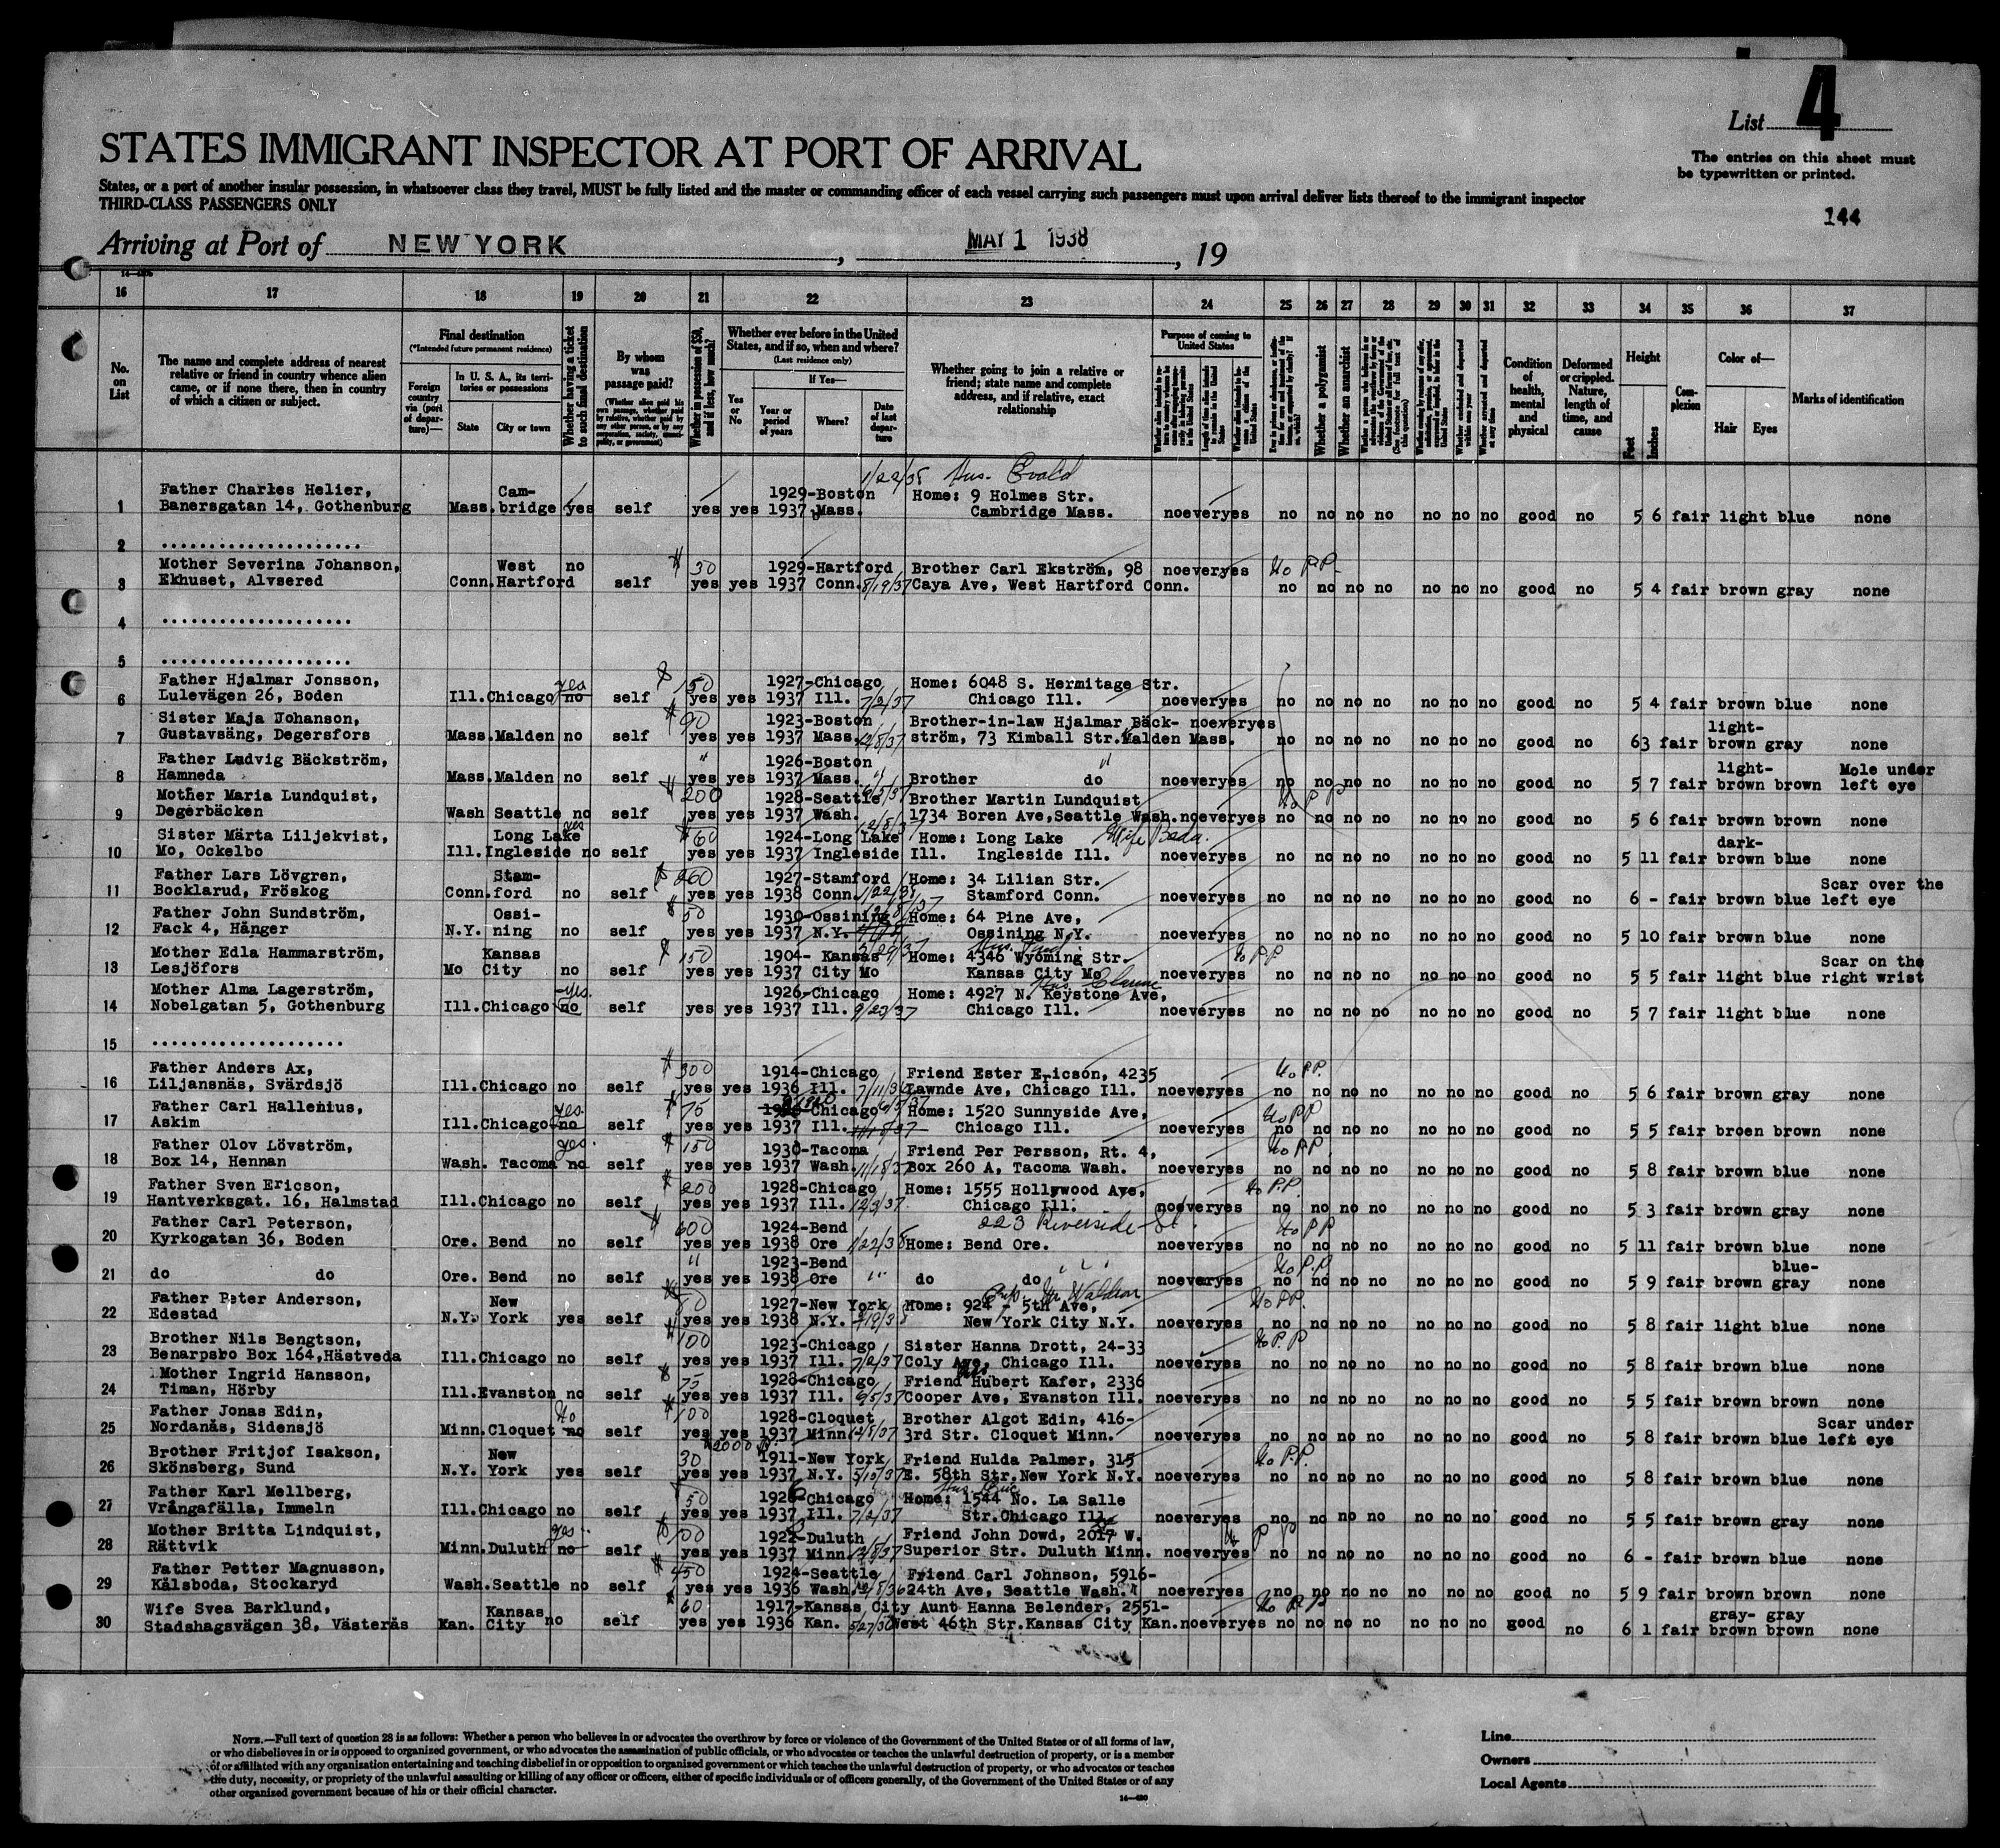 List 4
STATES IMMIGRANT INSPECTOR AT PORT OF ARRIVAL
The entries on this sheet must
be typewritten or printed.
States, or a port of another insular possession, in whatsoever class they travel, MUST be fully listed and the master or commanding officer of each vessel carrying such passengers must upon arrival deliver lists thereof to the immigrant inspector
THIRD-CLASS PASSENGERS ONLY
144
Arriving at Port of NEW YORK, MAY 1 1938, 19
16 17 18 19 20 21 22 23 24 25 26 27 28 29 30 31 32 33 34 35 36 37
No. on List
The name and complete address of nearest relative or friend in country whence alien came, or if none there, then in country of which a citizen or subject.
Final destination
(*Intended future permanent residence)
Foreign country via (port of departure)—
In U. S. A., its territories or possessions
State
City or town
Whether having a ticket to such final destination
By whom was passage paid?
Whether in possession of $50, and if less, how much?
Whether ever before in the United States, and if so, when and where?
(Last residence only)
Yes or No
If Yes—
Year or period of years
Where?
Date of last departure
Whether going to join a relative or friend; state name and complete address, and if relative, exact relationship
Purpose of coming to United States
Whether a polygamist
Whether an anarchist
Condition of health, mental and physical
Deformed or crippled. Nature, length of time, and cause
Height
Feet
Inches
Complexion
Color of—
Hair Eyes
Marks of identification
1/22/38 Hus. Evald
Father Charles Helier, Cam- 1929-Boston Home: 9 Holmes Str.
1 Banersgatan 14, Gothenburg Mass. bridge yes self yes yes 1937 Mass. Cambridge Mass. no every yes no no no no no no no good no 5 6 fair light blue none
2 ....................
Mother Severina Johanson, West no $ 30 1929-Hartford Brother Carl Ekström, 98 no every yes No P.P.
3 Ekhuset, Alvsered Conn. Hartford self yes yes 1937 Conn. 8/19/37 Caya Ave, West Hartford Conn. no no no no no no no good no 5 4 fair brown gray none
4 ...................
5 ...................
Father Hjalmar Jonsson, yes $ 150 1927-Chicago Home: 6048 S. Hermitage Str.
6 Lulevägen 26, Boden Ill. Chicago no self yes yes 1937 Ill. 7/2/37 Chicago Ill. no every yes no no no no no no no good no 5 4 fair brown blue none
Sister Maja Johanson, $ 90 1923-Boston Brother-in-law Hjalmar Bäck- no every yes light-
7 Gustavsäng, Degersfors Mass. Malden no self yes yes 1937 Mass. 12/8/37 ström, 73 Kimball Str. Malden Mass. no no no no no no no good no 6 3 fair brown gray none
Father Ludvig Bäckström, " 1926-Boston " light- Mole under
8 Hamneda Mass. Malden no self yes yes 1937 Mass. " Brother do no every yes no no no no no no no good no 5 7 fair brown brown left eye
Mother Maria Lundquist, $ 200 1928-Seattle Brother Martin Lundquist No P P
9 Degerbäcken Wash Seattle no self yes yes 1937 Wash. 1734 Boren Ave, Seattle Wash. no every yes no no no no no no no good no 5 6 fair brown brown none
Sister Märta Liljekvist, Long Lake yes $ 60 1924-Long Lake Home: Long Lake Wife Beda. dark-
10 Mo, Ockelbo Ill. Ingleside no self yes yes 1937 Ingleside Ill. Ingleside Ill. no every yes no no no no no no no good no 5 11 fair brown blue none
Father Lars Lövgren, Stam- $ 260 1927-Stamford Home: 34 Lilian Str. Scar over the
11 Bocklarud, Fröskog Conn. ford no self yes yes 1938 Conn. 1/22/38 Stamford Conn. no every yes no no no no no no no good no 6 - fair brown blue left eye
Father John Sundström, Ossi- $ 50 1930-Ossining Home: 64 Pine Ave,
12 Fack 4, Hånger N.Y. ning no self yes yes 1937 N.Y. Ossining N.Y. no every yes no no no no no no no good no 5 10 fair brown blue none
Mother Edla Hammarström, Kansas $ 150 1904- Kansas Home: 4346 Wyoming Str. No P.P Scar on the
13 Lesjöfors Mo City no self yes yes 1937 City Mo Kansas City Mo no every yes no no no no no no no good no 5 5 fair light blue right wrist
Mother Alma Lagerström, yes. 1926-Chicago Home: 4927 N. Keystone Ave,
14 Nobelgatan 5, Gothenburg Ill. Chicago no self yes yes 1937 Ill. 9/23/37 Chicago Ill. no every yes no no no no no no no good no 5 7 fair light blue none
15 ...................
Father Anders Ax, $ 300 1914-Chicago Friend Ester Ericson, 4235 No P.P.
16 Liljansnäs, Svärdsjö Ill. Chicago no self yes yes 1936 Ill. Lawnde Ave, Chicago Ill. no every yes no no no no no no no good no 5 6 fair brown gray none
Father Carl Hallenius, yes. $ 75 Chicago Home: 1520 Sunnyside Ave, No P.P
17 Askim Ill. Chicago no self yes yes 1937 Ill. 11/18/37 Chicago Ill. no every yes no no no no no no no good no 5 5 fair broen brown none
Father Olov Lövström, yes. $ 150 1930-Tacoma Friend Per Persson, Rt. 4, No P.P.
18 Box 14, Hennan Wash. Tacoma no self yes yes 1937 Wash. 11/18/37 Box 260 A, Tacoma Wash. no every yes no no no no no no no good no 5 8 fair brown blue none
Father Sven Ericson, $ 200 1928-Chicago Home: 1555 Hollywood Ave, No P.P.
19 Hantverksgat. 16, Halmstad Ill. Chicago no self yes yes 1937 Ill. 12/3/37 Chicago Ill. no every yes no no no no no no no good no 5 3 fair brown gray none
Father Carl Peterson, $ 600 1924-Bend 223 Riverside St. No P.P
20 Kyrkogatan 36, Boden Ore. Bend no self yes yes 1938 Ore 1/22/38 Home: Bend Ore. no every yes no no no no no no no good no 5 11 fair brown blue none
" 1923-Bend No P.P blue-
21 do do Ore. Bend no self yes yes 1938 Ore " do do no every yes no no no no no no no good no 5 9 fair brown gray none
Father Peter Anderson, New 1927-New York Home: 924 - 5th Ave, No P.P.
22 Edestad N.Y. York yes self yes yes 1938 N.Y. New York City N.Y. no every yes no no no no no no no good no 5 8 fair light blue none
Brother Nils Bengtson, $ 100 1923-Chicago Sister Hanna Drott, 24-33 No P.P
23 Benarpsbo Box 164, Hästveda Ill. Chicago no self yes yes 1937 Ill. 7/2/37 Coly Ave, Chicago Ill. no every yes no no no no no no no good no 5 8 fair brown blue none
Mother Ingrid Hansson, $ 75 1928-Chicago Friend Hubert Kafer, 2336
24 Timan, Hörby Ill. Evanston no self yes yes 1937 Ill. Cooper Ave, Evanston Ill. no every yes no no no no no no no good no 5 5 fair brown brown none
Father Jonas Edin, No $ 100 1928-Cloquet Brother Algot Edin, 416- Scar under
25 Nordanås, Sidensjö Minn. Cloquet no self yes yes 1937 Minn 12/8/37 3rd Str. Cloquet Minn. no every yes no no no no no no no good no 5 8 fair brown blue left eye
Brother Fritjof Isakson, New 30 1911-New York Friend Hulda Palmer, 315 No P.P.
26 Skönsberg, Sund N.Y. York yes self yes yes 1937 N.Y. 5/15/37 E. 58th Str. New York N.Y. no every yes no no no no no no no good no 5 8 fair brown blue none
Father Karl Mellberg, 50 Chicago Home: 1544 No. La Salle
27 Vrångafälla, Immeln Ill. Chicago no self yes yes 1937 Ill. 7/2/37 Str. Chicago Ill. no every yes no no no no no no no good no 5 5 fair brown gray none
Mother Britta Lindquist, yes 1922-Duluth Friend John Dowd, 2017 W. No P P
28 Rättvik Minn. Duluth no self yes yes 1937 Minn 12/8/37 Superior Str. Duluth Minn. no every yes no no no no no no no good no 6 - fair brown blue none
Father Petter Magnusson, $ 450 1924-Seattle Friend Carl Johnson, 5916-
29 Kälsboda, Stockaryd Wash. Seattle no self yes yes 1936 Wash. 24th Ave, Seattle Wash. no every yes no no no no no no no good no 5 9 fair brown brown none
Wife Svea Barklund, Kansas 60 1917-Kansas City Aunt Hanna Belender, 2551- No P.P gray- gray
30 Stadshagsvägen 38, Västerås Kan. City no self yes yes 1936 Kan. West 46th Str. Kansas City Kan. no every yes no no no no no no no good no 6 1 fair brown brown none
NOTE.—Full text of question 28 is as follows: Whether a person who believes in or advocates the overthrow by force or violence of the Government of the United States or of all forms of law,
or who disbelieves in or is opposed to organized government, or who advocates the assassination of public officials, or who advocates or teaches the unlawful destruction of property, or is a member
of or affiliated with any organization entertaining and teaching disbelief in or opposition to organized government or which teaches the unlawful destruction of property, or who advocates or teaches
the duty, necessity, or propriety of the unlawful assaulting or killing of any officer or officers, either of specific individuals or of officers generally, of the Government of the United States or of any
other organized government because of his or their official character.
Line
Owners
Local Agents